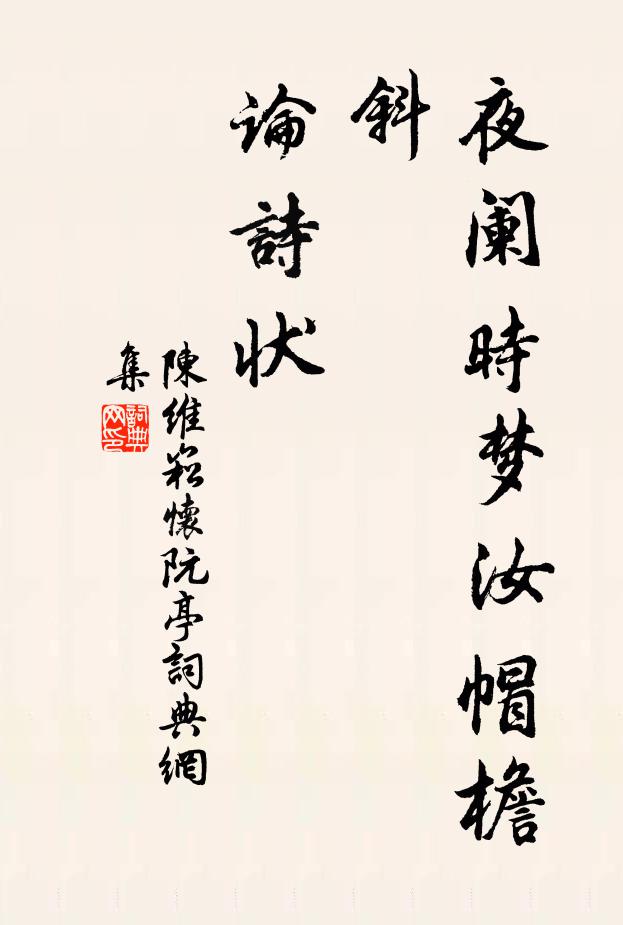 夜阑時梦汝帽檐
斜
論詩状
陳維崧懷阮亭詞典網
集
詞典
网印